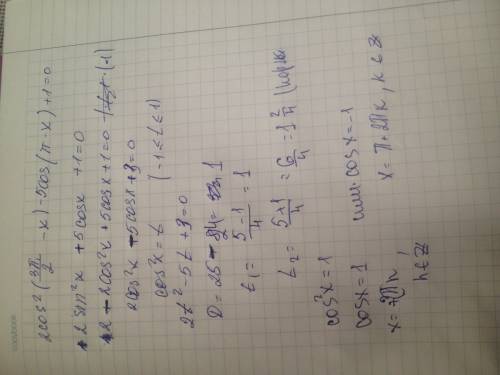 2cos²(3π/2 - x) - 5cos(π - x) + 1 = 0
2sin²x + 5cosx + 1 = 0
2 - 2cos²x + 5cosx + 1 = 0 | · (-1)
2cos²x - 5cosx + 3 = 0
cos²x = t (-1 ≤ t ≤ 1)
2t² - 5t + 3 = 0
D = 25 - 24 = 1
t₁ = (5 - 1)/4 = 1
t₂ = (5 + 1)/4 = 6/4 = 1 2/4
cos²x = 1
cosx = 1 или cosx = -1
x = 2πn, n ∈ Z
x = π + 2πk, k ∈ Z